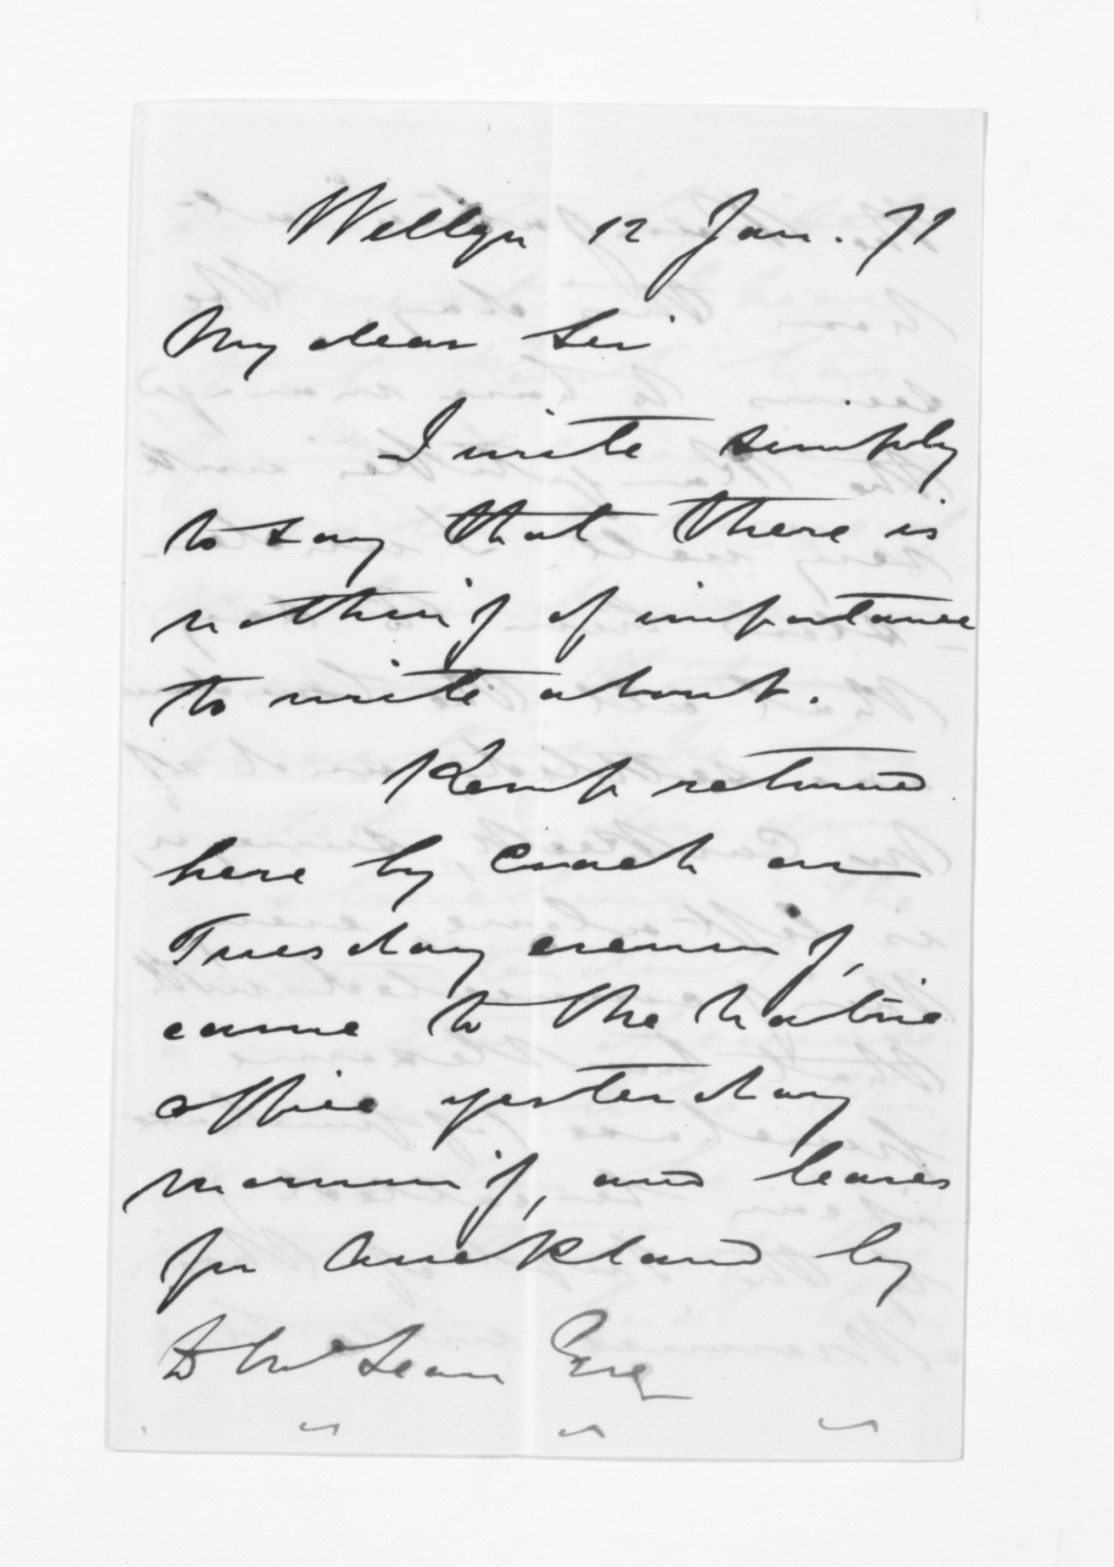 Wellgn 12 Jan. 71
My dear Sir
I write simply
to say that there is
nothing of importance
to write about.
Kemp returned
here by Coach on
Tuesday evening,
came to the Native
office yesterday
morning, and leaves
for Auckland by
D McLean Esq